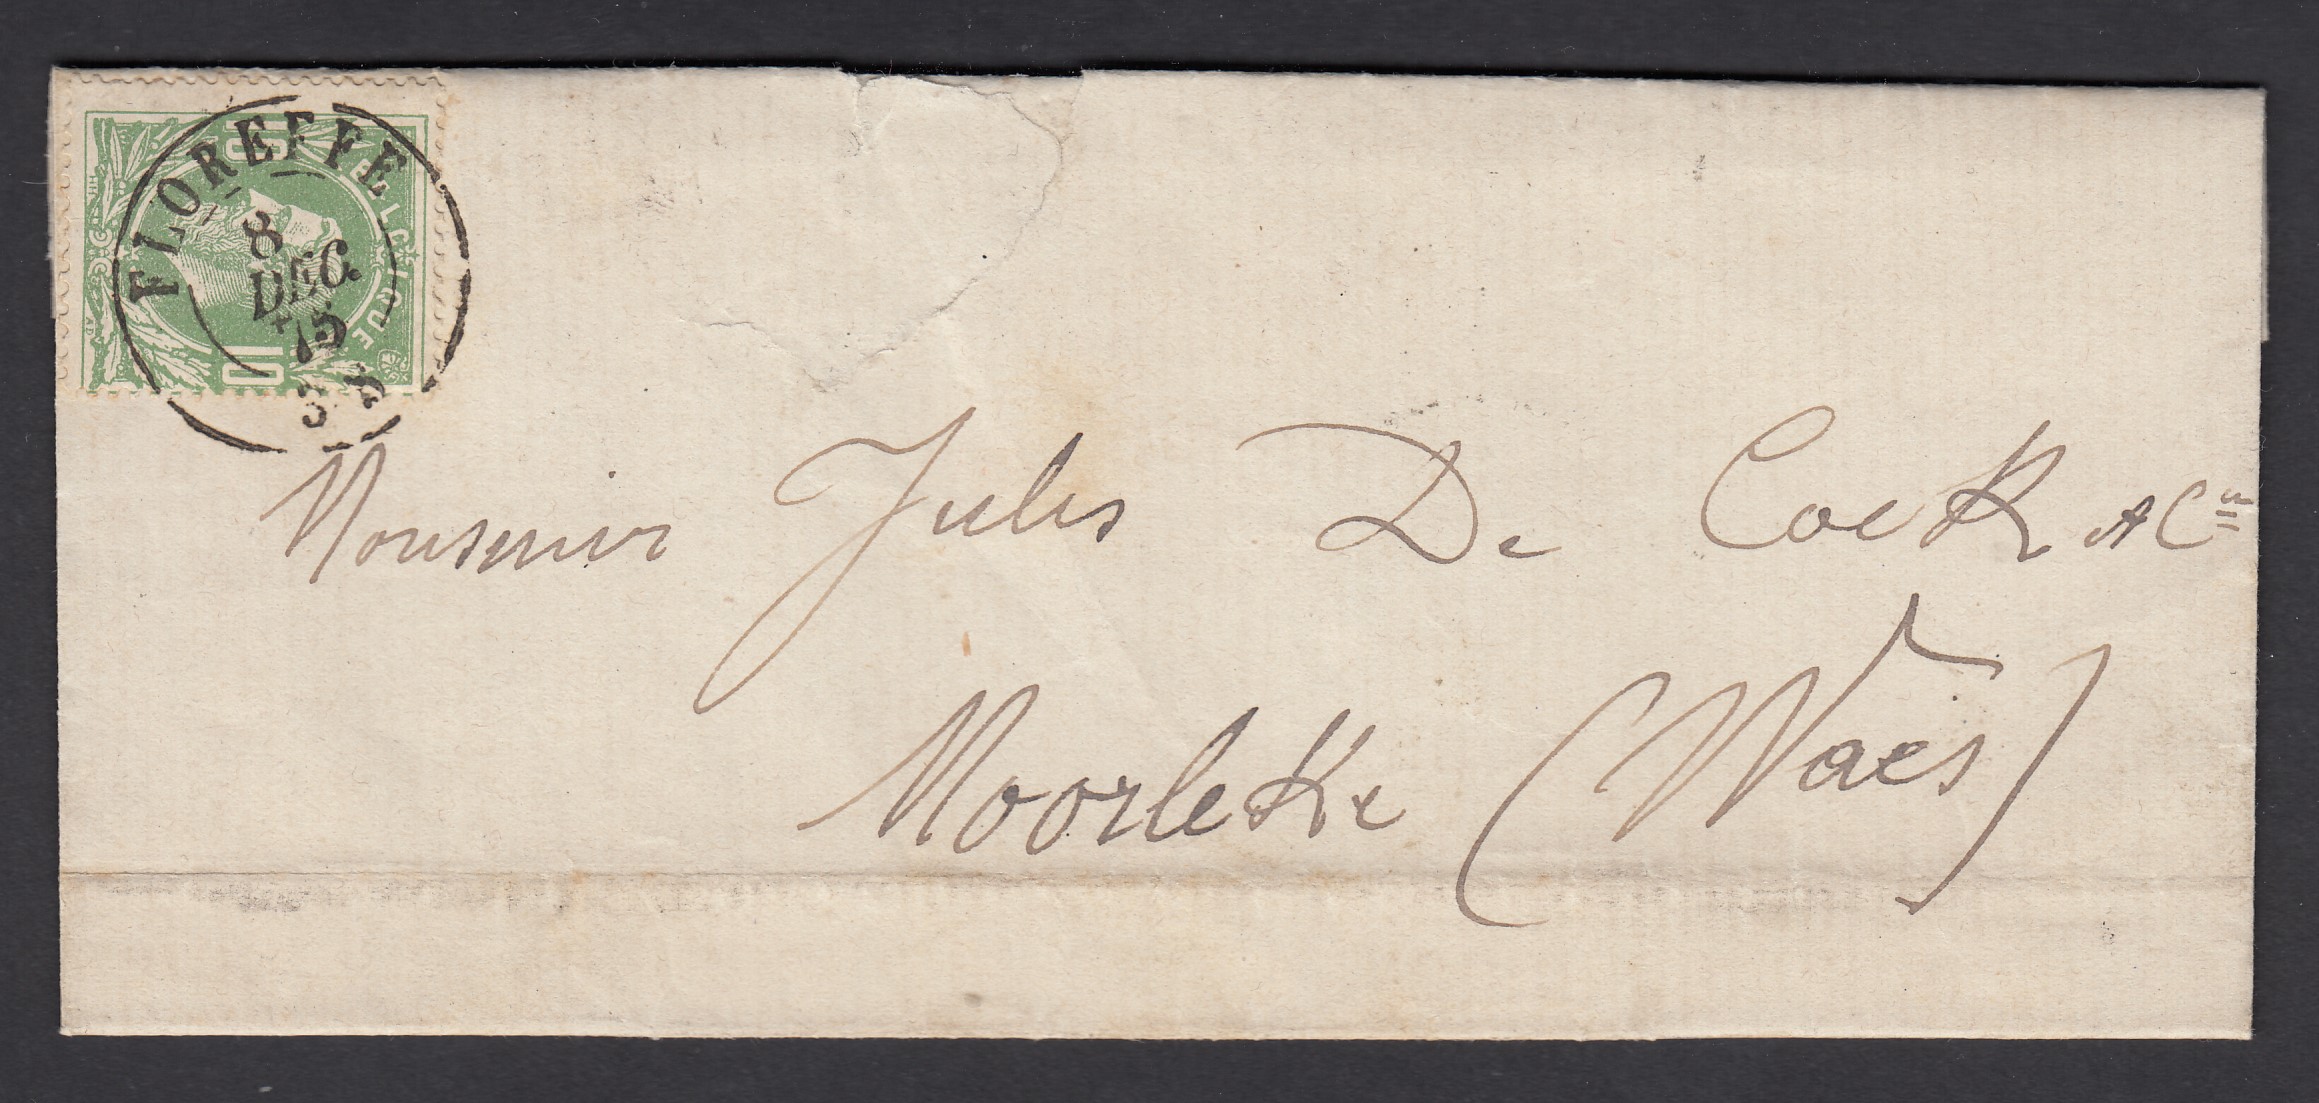 FLOREFFE
8
DEC.
75
3-S
BELGIQUE
10
10
Monsieur Jules De Cock & Cie
Moorleke (Waes)